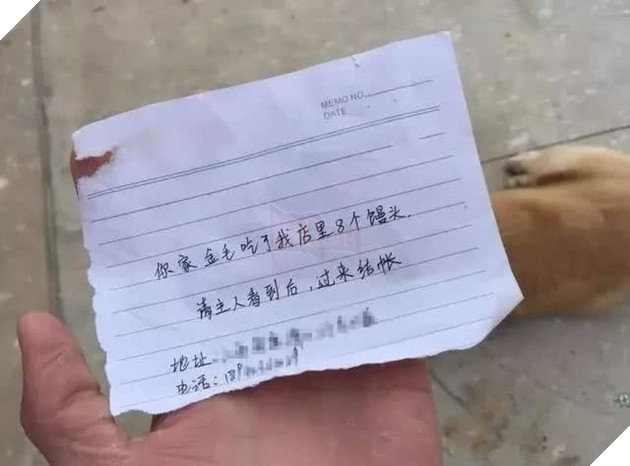 MEMO NO.
DATE
你家金毛吃了我店里8个馒头.
请主人看到后,过来结帐
地址
电话:189